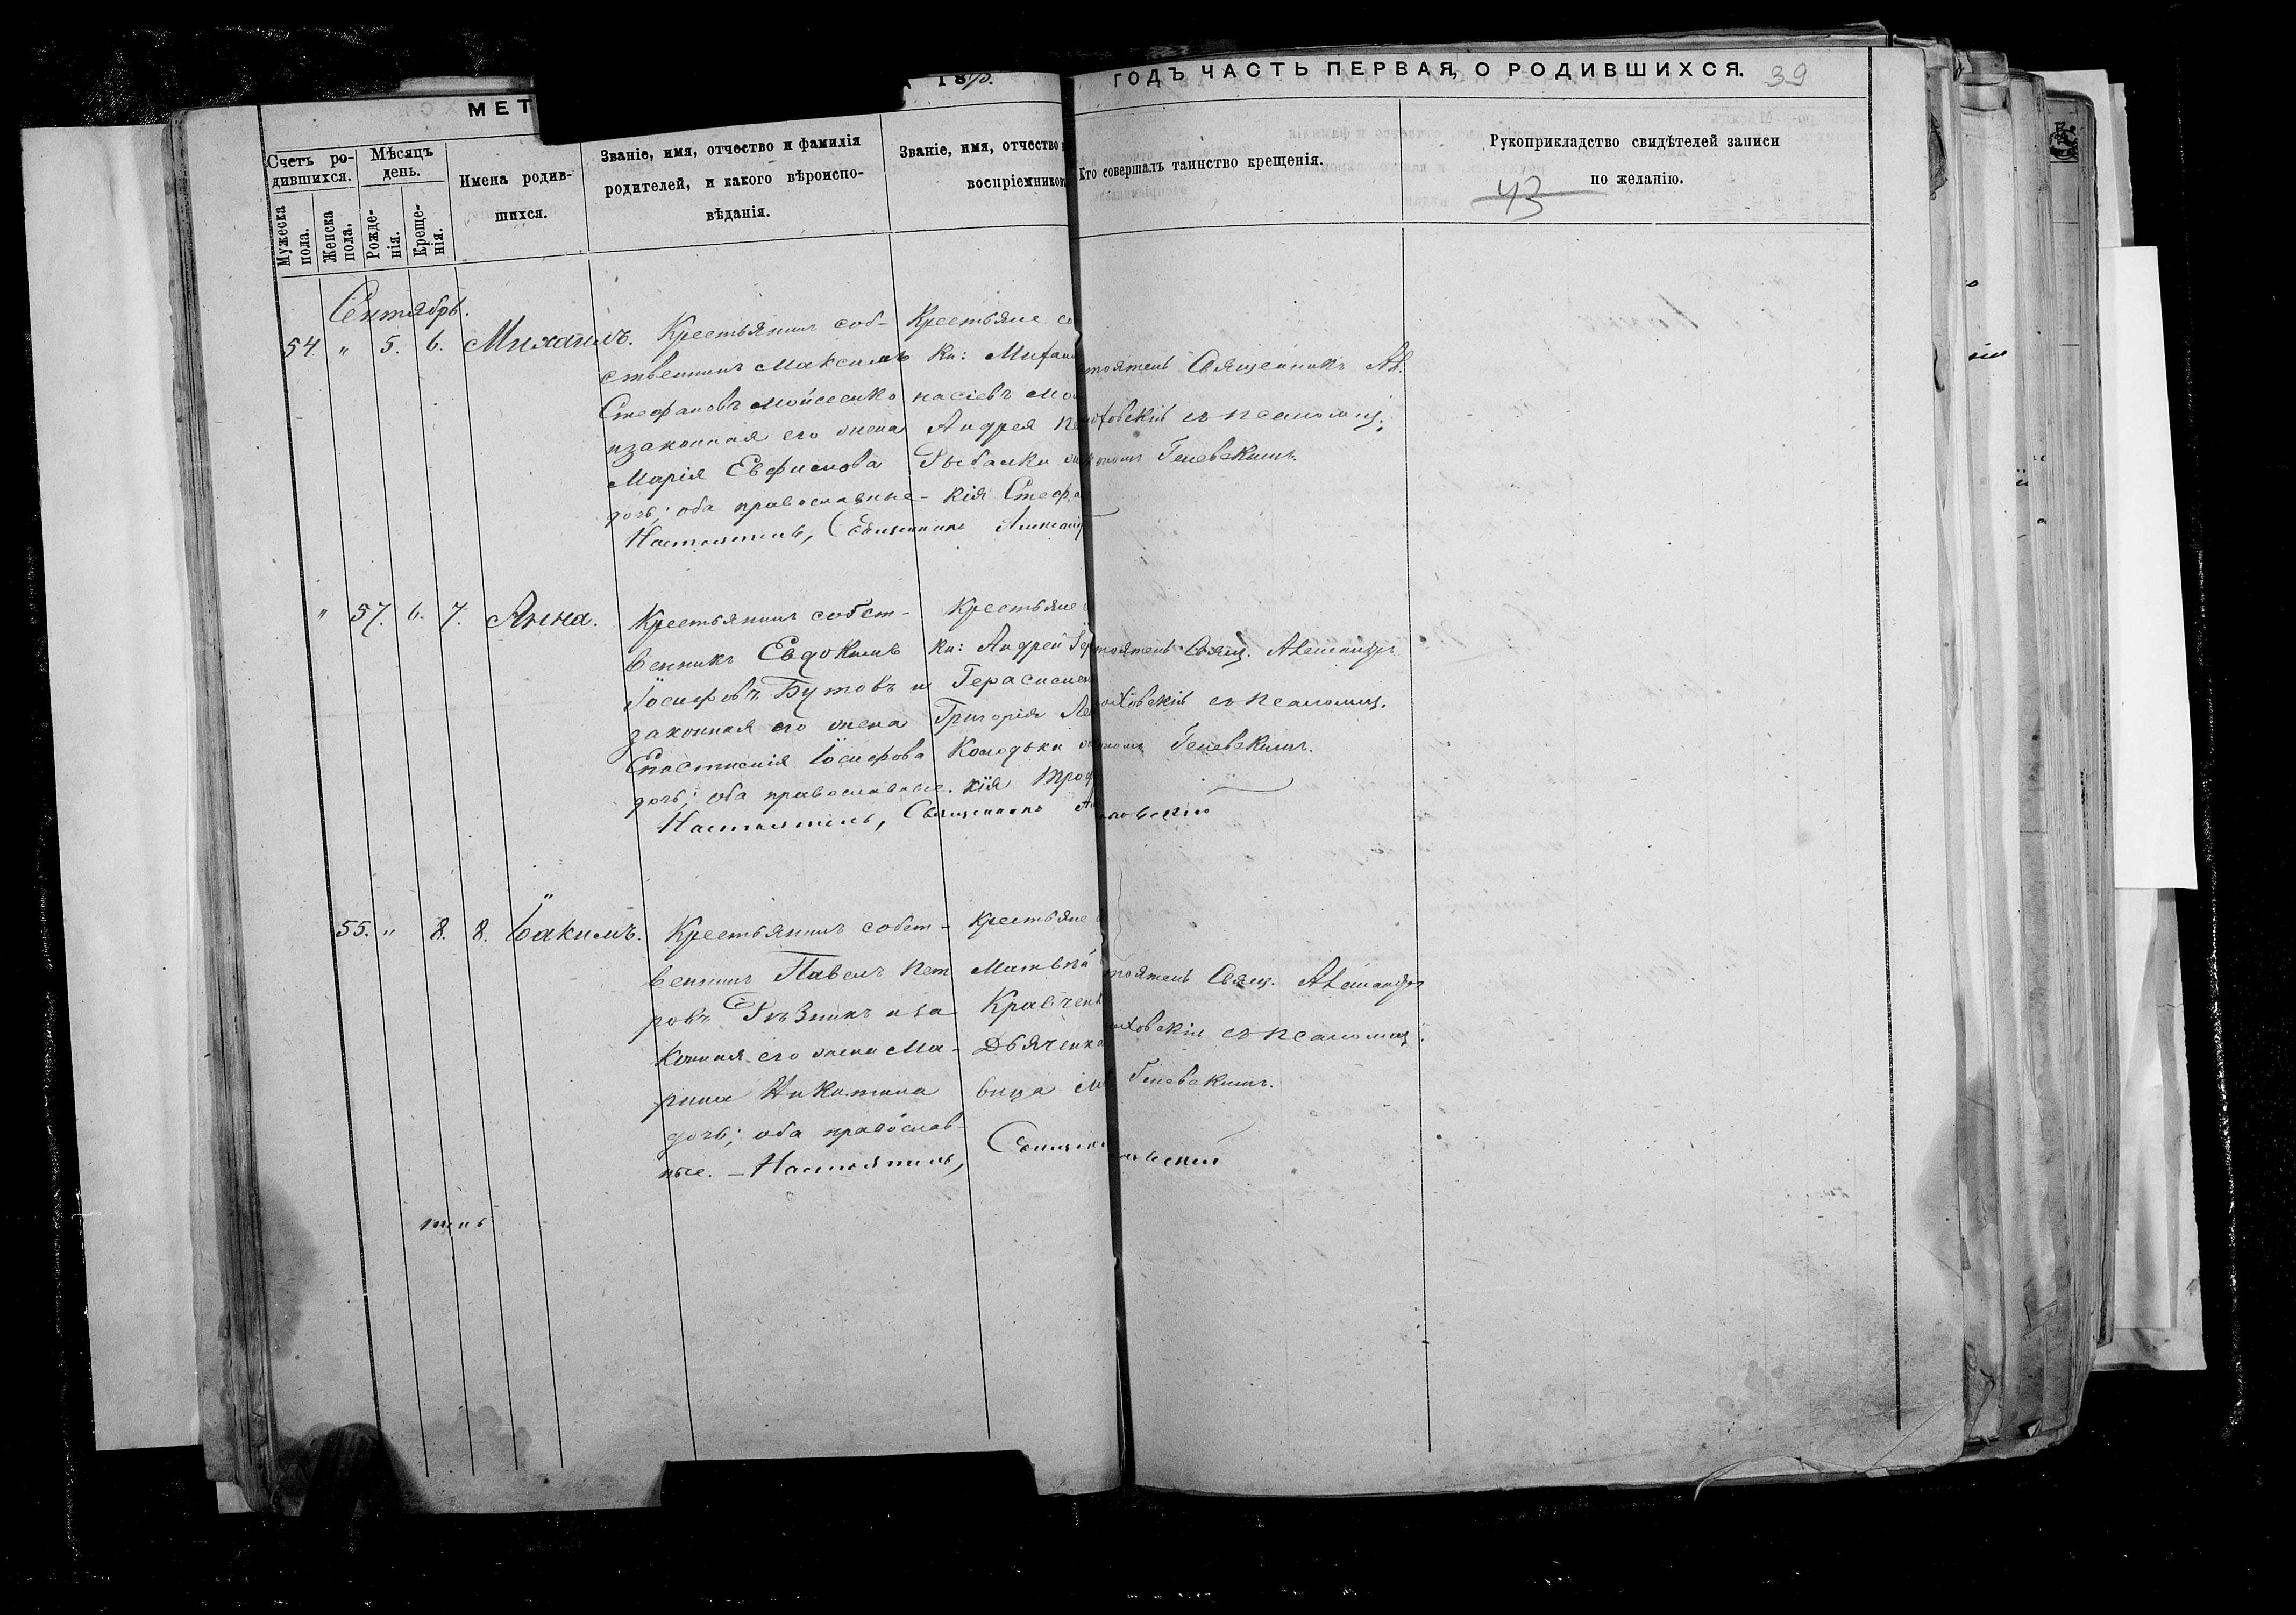 МЕТ
18
ГОДЪ ЧАСТЬ ПЕРВАЯ, О РОДИВШИХСЯ. 39
Счетъ ро-
дившихся.
Мужеска
пола.
Женска
пола.
Мѣсяцъ
день.
Рожде-
нія.
Креще-
нія.
Имена родив-
шихся.
Званіе, имя, отчество и фамилія
родителей, и какого вѣроиспо-
вѣданія.
Званіе, имя, отчество
воспріемников
Кто совершалъ таинство крещенія.
Рукоприкладство свидѣтелей записи
по желанію.
43
Сентябрь.
54. " 5. 6. Михаилъ.
Крестьянинъ соб-
ственникъ Максимъ
Стефановъ Мойсеенко
и законная его жена
Марія Евфимова
дочь; оба православные-
Настоятель, Священникъ
Крестьяне со
ки: Михаи
насіевъ Мо
Андрея
Рыбалки
кія Стефа
стоятель Священникъ Ал.
ховскій съ псаломщ.
Геневскимъ.
" 57. 6. 7. Анна.
Крестьянинъ собст-
венникъ Евдокимъ
Іосифовъ Бутовъ и
законная его жена
Іосифова
дочь; оба православные.
Настоятель, Священникъ
Крестьяне
ки: Андрей
Герасимен
Григорія
Колодъки
кія Троф
стоятель Свящ. Александръ
ховскій съ псаломщ.
Геневскимъ.
55. " 8. 8. Іоакимъ.
Крестьянинъ собст-
венникъ Павелъ Пет
ровъ Рѣзникъ и за
конная его жена Ма-
рина Никитина
дочь; оба православ-
ные. - Настоятель,
Крестьяне
Матвѣй
Кравченк
Дьяченко
вица
Священ
стоятель Свящ. Александръ
ховскій съ псаломщ.
Геневскимъ.